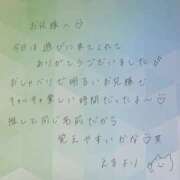 お兄様へ
今日は遊びに来てくれて
ありがとうございました
おしゃべりで明るいお兄様で
すっっっごく楽しい時間だったよ〜
推しと同じ名前だから
覚えやすいかな笑
えまより